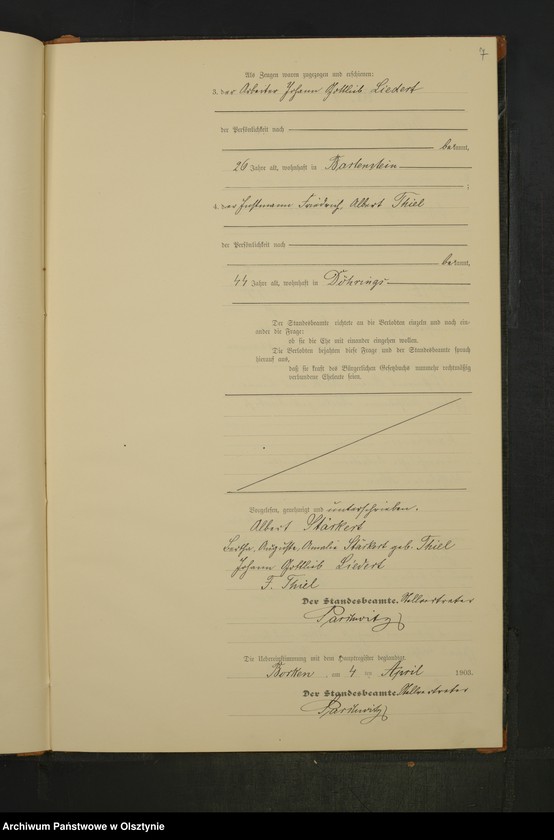 7
Als Zeugen waren zugezogen und erschienen:
3. der Arbeiter Johann Gottlieb Liedert
der Persönlichkeit nach
bekannt,
26 Jahre alt, wohnhaft in Bartenstein
;
4. der Instmann Friedrich Albert Thiel
der Persönlichkeit nach
bekannt,
44 Jahre alt, wohnhaft in Döhrings
Der Standesbeamte richtete an die Verlobten einzeln und nach ein-
ander die Frage:
ob sie die Ehe mit einander eingehen wollen.
Die Verlobten bejahten diese Frage und der Standesbeamte sprach
hierauf aus,
daß sie kraft des Bürgerlichen Gesetzbuchs nunmehr rechtmäßig
verbundene Eheleute seien.
Vorgelesen, genehmigt und unterschrieben.
Albert Stärkert
Bertha, Auguste, Amalie Stärkert geb. Thiel
Johann Gottlieb Liedert
F. Thiel
Der Standesbeamte. Stellvertreter
Die Uebereinstimmung mit dem Hauptregister beglaubigt
Borken, am 4 ten April 190
Der Standesbeamte. Stellvertreter
Archiwum Państwowe w Olsztynie